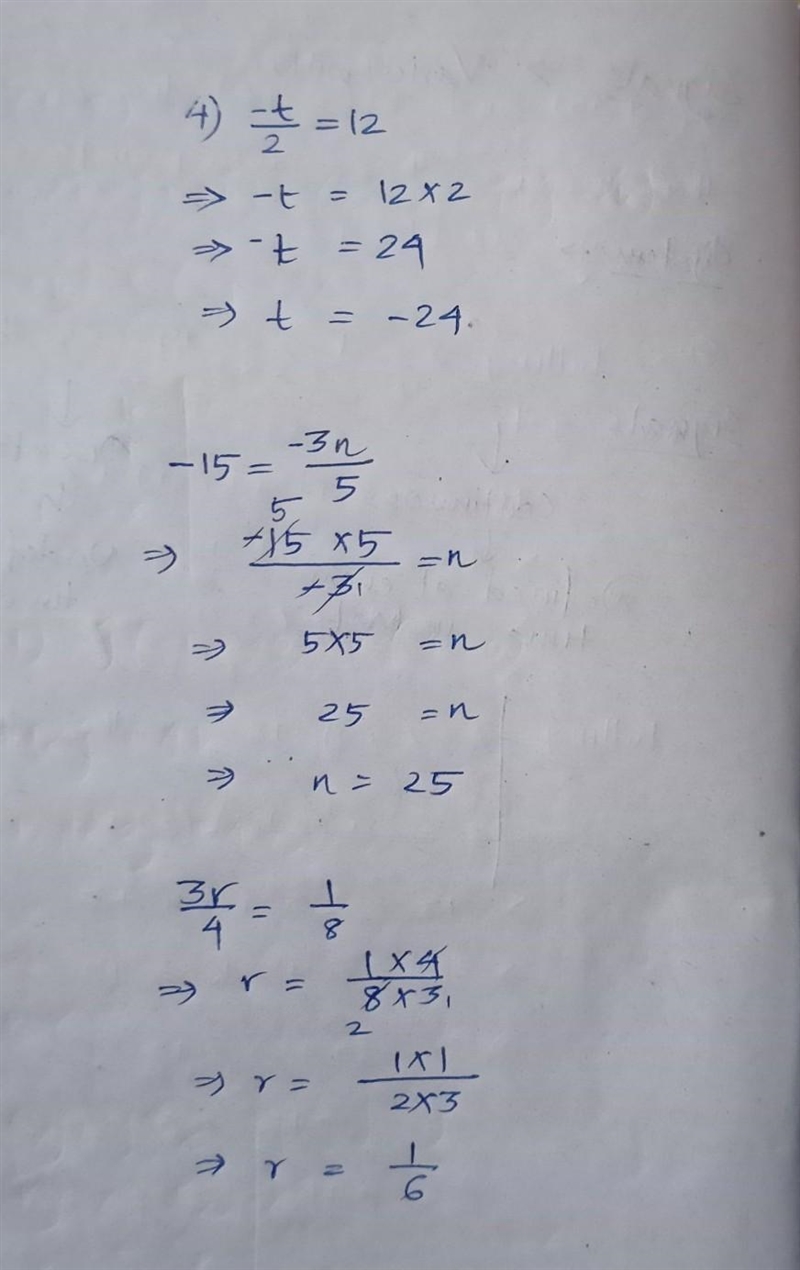 4) -t/2 = 12
⇒ -t = 12 × 2
⇒ -t = 24
⇒ t = -24.
-15 = -3n/5
⇒ (-15 × 5)/(-3) = n
5
1
⇒ 5×5 = n
⇒ 25 = n
⇒ n = 25
3r/4 = 1/8
⇒ r = (1 × 4)/(8 × 3)
1
2
⇒ r = (1×1)/(2×3)
⇒ r = 1/6